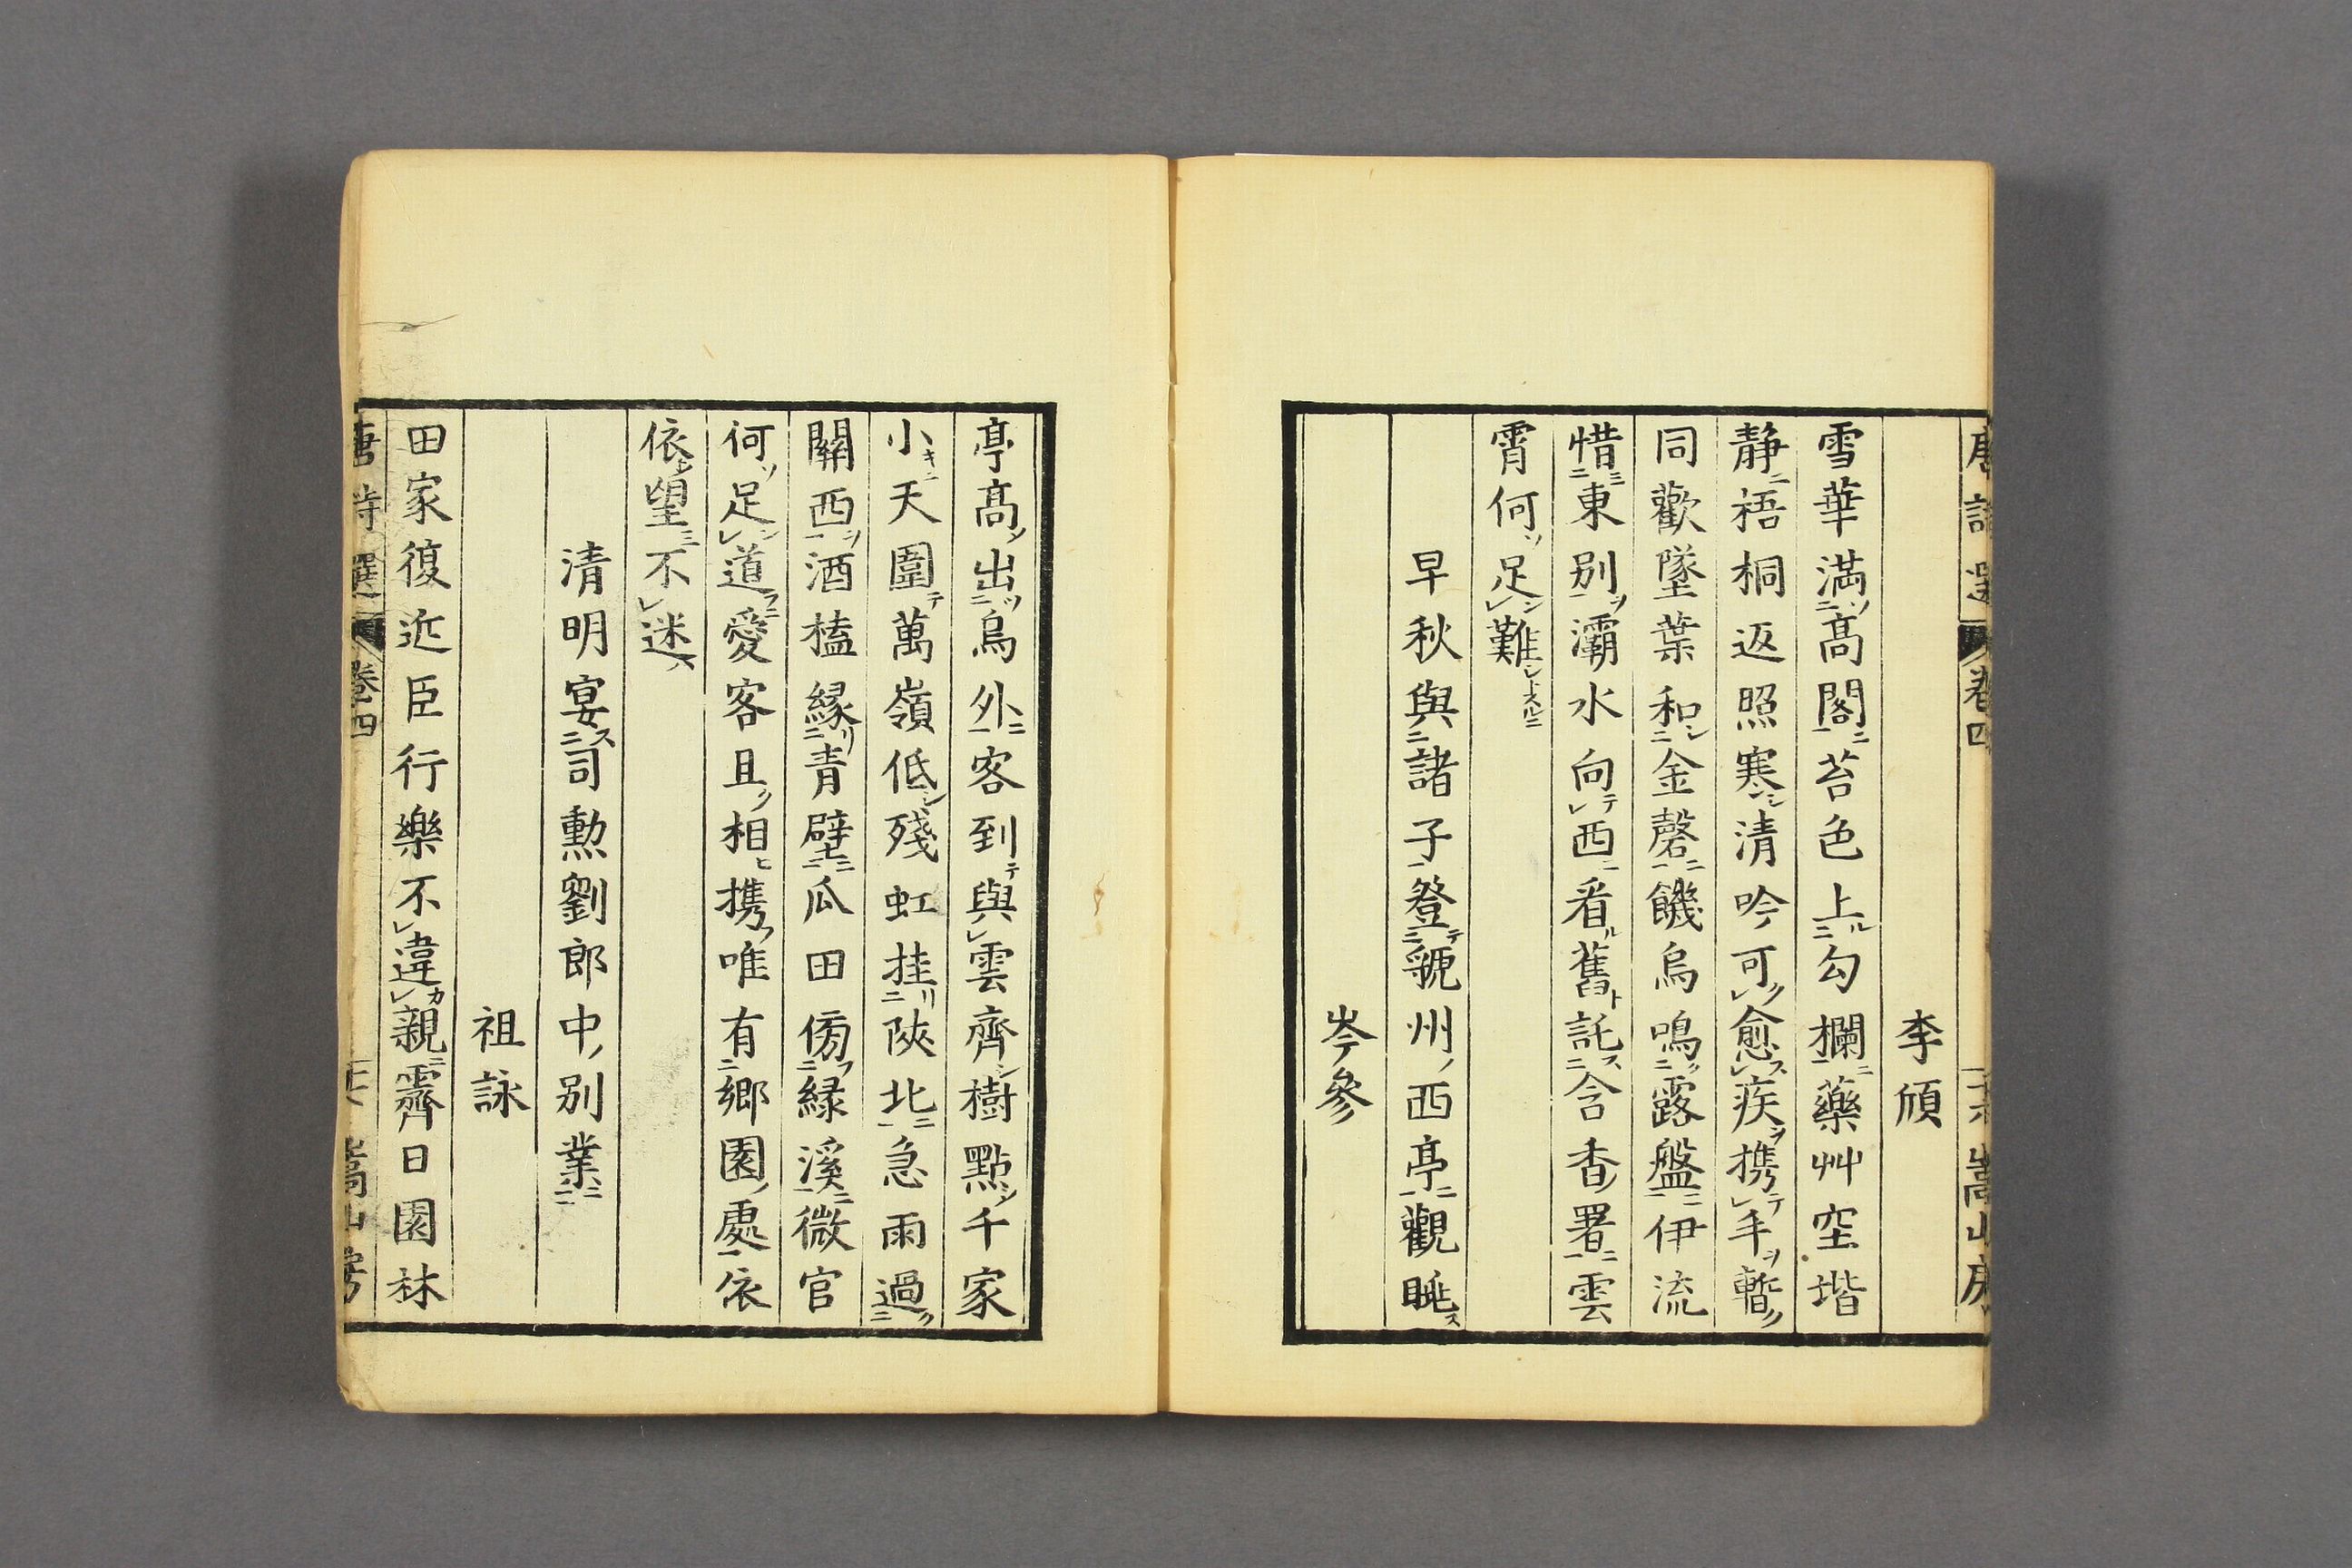 李頎
雪華満髙閣苔色上勾欄藥艸空堦
静梧桐返照寒清吟可愈疾携手暫
同歡墜葉和金磬饑烏鳴露盤伊流
惜東别灞水向西看舊託含香署雲
霄何足難
早秋與諸子登虢州西亭觀眺
岑參
亭髙出鳥外客到與雲齊樹點千家
小天圍萬嶺低殘虹挂陝北急雨過
關西酒榼緑青壁瓜田傍緑溪微官
何足道愛客且相携唯有鄉園處依
依望不迷
清明宴司勲劉郎中别業
祖詠
田家復近臣行樂不違親霽日園林
唐詩選 卷四 嵩山房